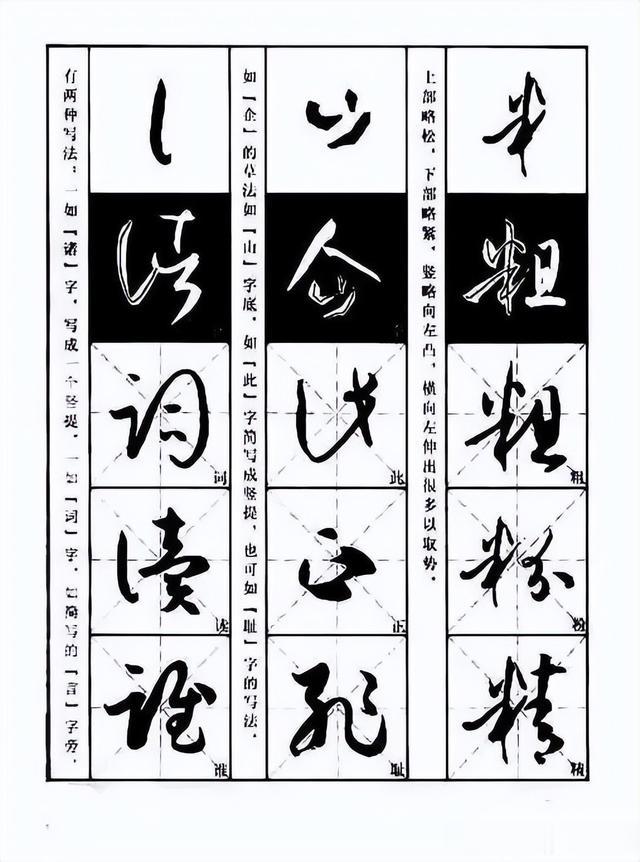 米
粗
粗
粗
粉
粉
精
精
上部略松，下部略紧，竖略向左凸，横向左伸出很多以取势。
止
企
此
此
正
正
耻
耻
如「企」的草法如「山」字底，如「此」字简写成竖提，也可如「耻」字的写法。
讠
诸
词
词
读
读
谁
谁
有两种写法：一如「诸」字，写成一个竖提，一如「词」字，如简写的「言」字旁。